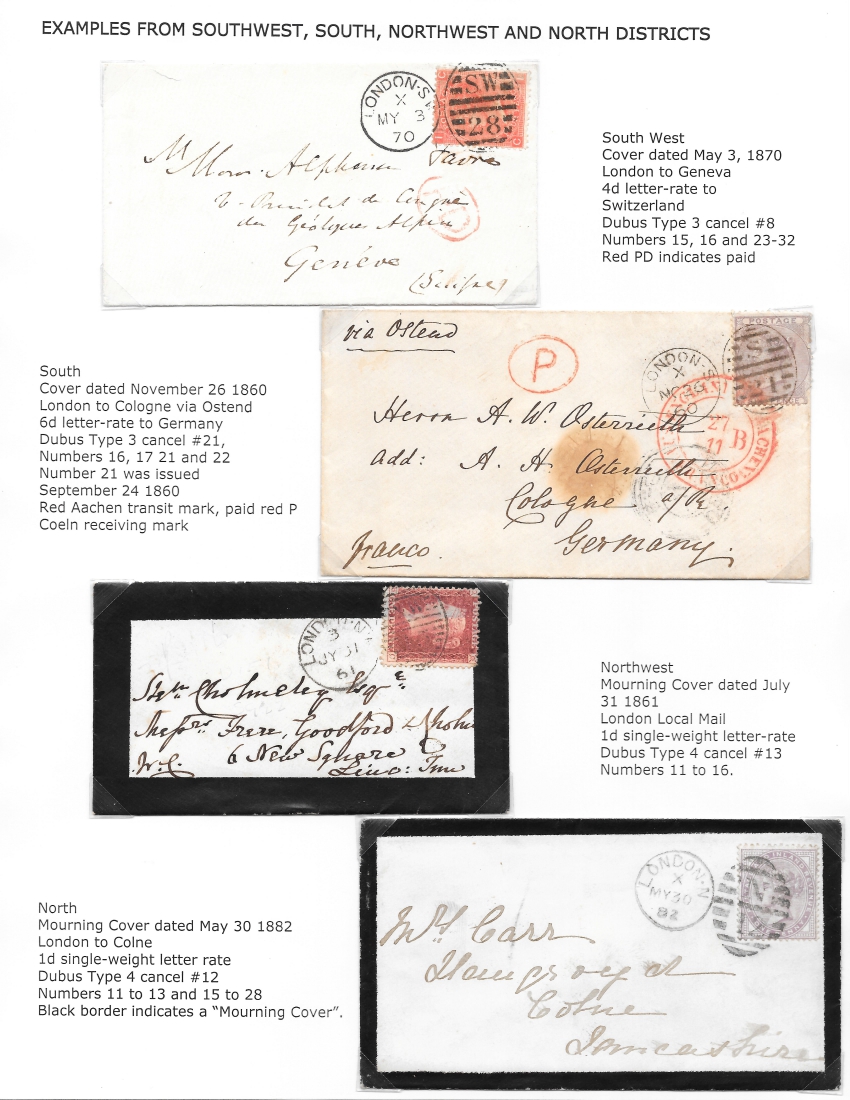 EXAMPLES FROM SOUTHWEST, SOUTH, NORTHWEST AND NORTH DISTRICTS
LONDON·S
X
MY 3
70
SW
28
Alphonse Favre
Géologues Alpin
Genève
South West
Cover dated May 3, 1870
London to Geneva
4d letter-rate to
Switzerland
Dubus Type 3 cancel #8
Numbers 15, 16 and 23-32
Red PD indicates paid
via Ostend
P
LONDON·S
X
60
POSTAGE
27
11
B
Herrn A. W. Osterrieth
add: A. H. Osterrieth
Cologne a/R
Germany.
franco.
South
Cover dated November 26 1860
London to Cologne via Ostend
6d letter-rate to Germany
Dubus Type 3 cancel #21,
Numbers 16, 17 21 and 22
Number 21 was issued
September 24 1860
Red Aachen transit mark, paid red P
Coeln receiving mark
LONDON·N
3
JY 31
61
Cholmeley Esqre
Messrs Frere, Goodford &
6 New Square
W.C. Linc: Inn
Northwest
Mourning Cover dated July
31 1861
London Local Mail
1d single-weight letter-rate
Dubus Type 4 cancel #13
Numbers 11 to 16.
LONDON·N
X
MY30
82
Carr
Colne
Lancashire
North
Mourning Cover dated May 30 1882
London to Colne
1d single-weight letter rate
Dubus Type 4 cancel #12
Numbers 11 to 13 and 15 to 28
Black border indicates a “Mourning Cover”.